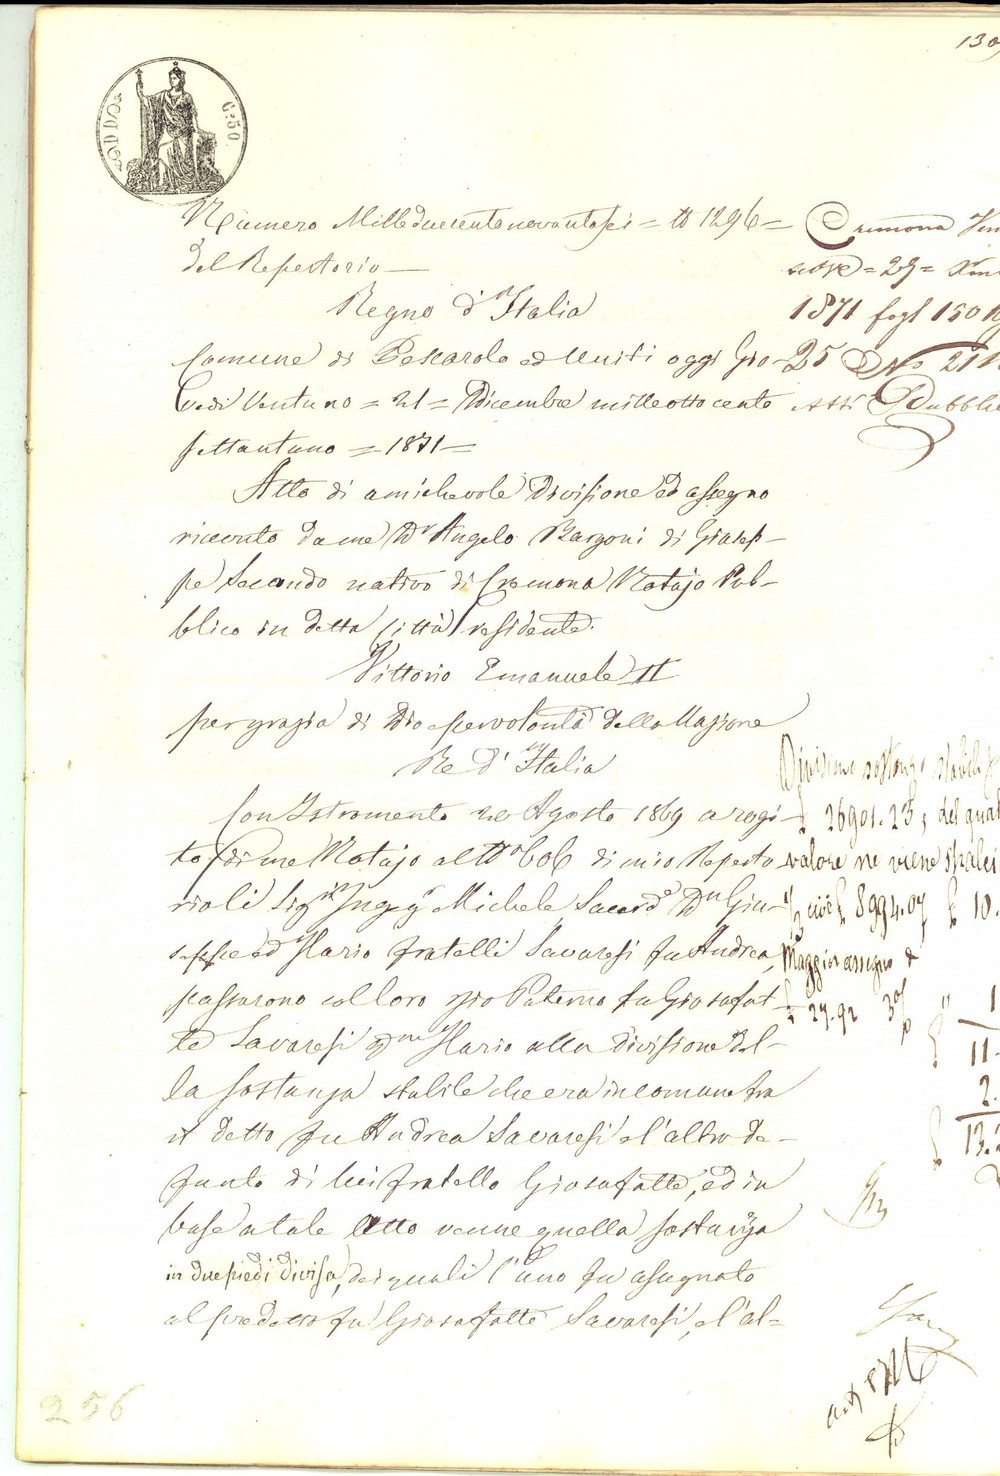 130
C: 50
Numero Mille duecento novantasei = N 1296 =
del Repertorio —
Regno d'Italia
Comune di Pescarolo ed Uniti oggi Gio-
vedi Ventuno = 21 = Dicembre mille otto cento
settantuno = 1871 =
Atto di amichevole divisione ed assegno
ricevuto da me Dr Angelo Bargoni di Giusep-
pe Secondo nativo di Cremona Notajo Pub-
blico in detta Città residente.
Vittorio Emanuele II
per grazia di Dio e per volontà della Nazione
Re d'Italia
Con Istromento 20 Agosto 1869 a rogi-
to di me Notajo al N 606 di mio Reperto
rio li Sigri Ingr Michele, Sacerde Dn Giu-
seppe ed Ilario fratelli Savaresi fu Andrea,
passarono col loro zio Paterno fu Giosafat-
te Savaresi qm Ilario alla divisione del-
la sostanza stabile che era in comune fra
il detto fu Andrea Savaresi e l'altro de-
funto di lui fratello Giosafatte, ed in
base a tale Atto venne quella sostanza
in due piedi divisa, dei quali l'uno fu assegnato
al predetto fu Giosafatte Savaresi, e l'al-
Cremona
= 29 =
1871 fogl 150
25 No 211
Atti Pubbli
Divisione sostanza stabile
£ 26901.23, del qual
valore ne viene
1/3 cioè £ 8994.07 £ 10.
Maggior assegno
£ 27.92 3% " 1
£ 11.
2.
£ 13.
256